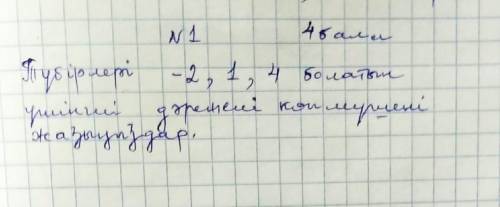 №1 4 балл
Түбірлері -2, 1, 4 болатын
үшінші дәрежелі көпмүшені
жазыңыздар.